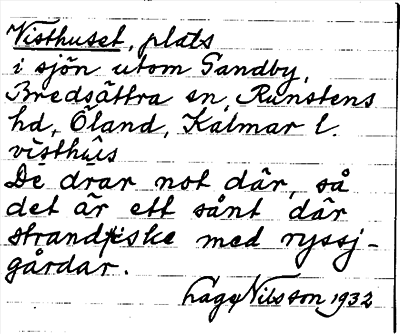 Visthuset, plats
i sjön utom Sandby,
Bredsättra sn, Runstens
hd, Öland, Kalmar l.
visthûs
De drar not där, så
det är ett sånt där
strandfiske med ryssj-
gårdar.
Lage Nilsson 1932